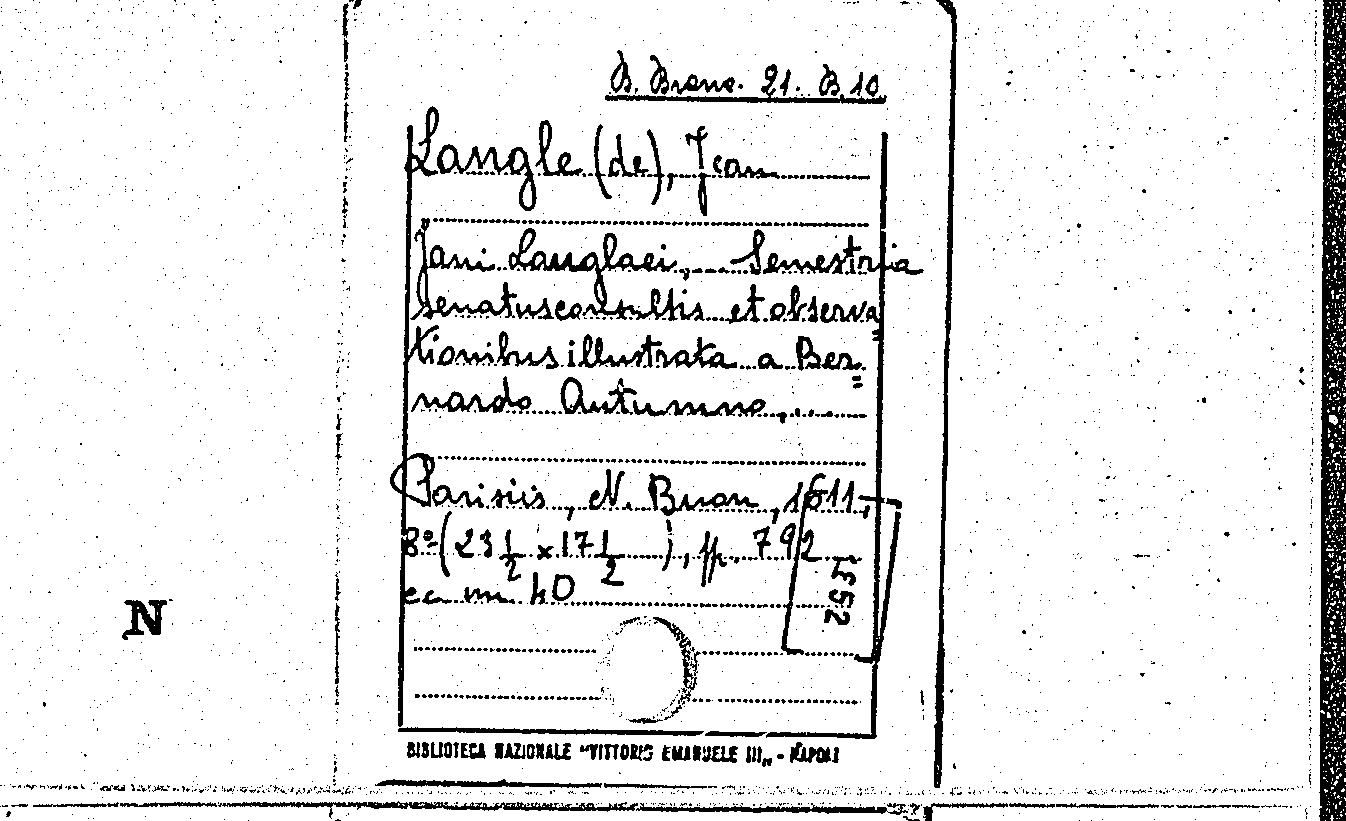 B. Branc. 21. B. 10
Langle (de), Jean
Jani Langlaei, ... Semestria
senatusconsultis et observa=
tionibus illustrata a Ber=
nardo Autumno, ...
Parisiis, N. Buon, 1611,
8º (23 1/2 x 17 1/2 ), pp. 792
1552
N
BIBLIOTECA NAZIONALE "VITTORIO EMANUELE III„ - NAPOLI